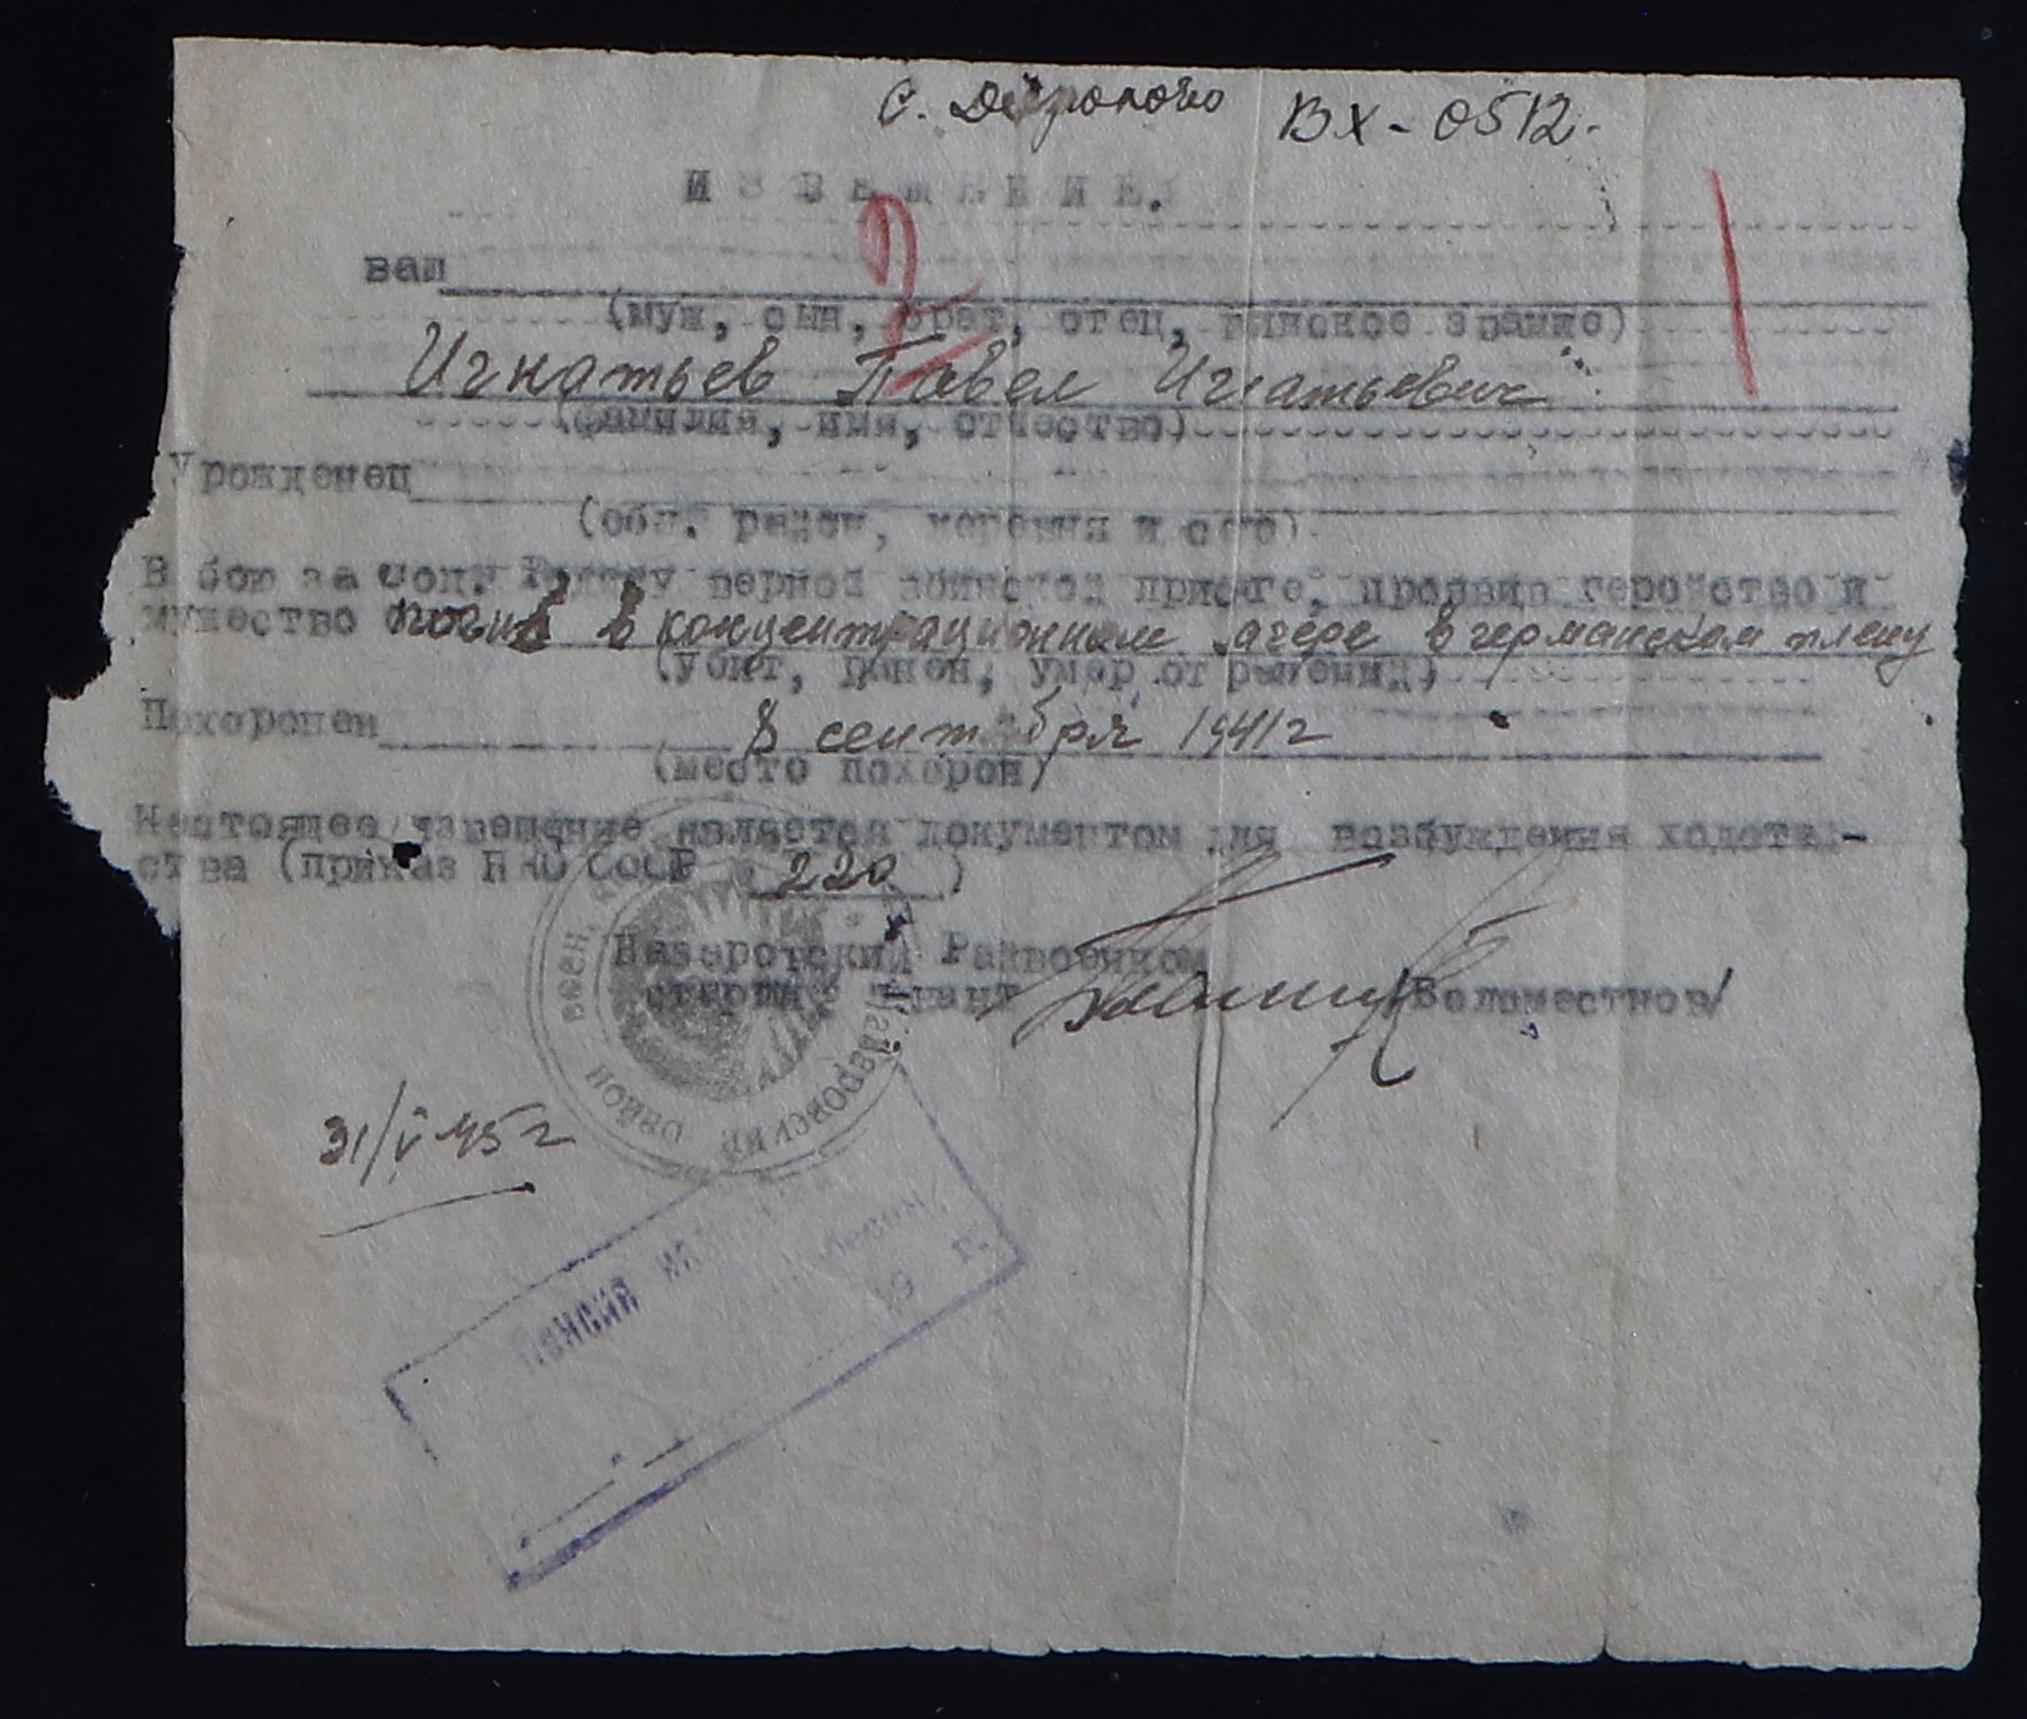 с. Дорохово Вх-0512.
ИЗВЕЩЕНИЕ.
Ваш
(муж, сын, брат, отец, воинское звание)
Игнатьев Павел Игнатьевич
(фамилия, имя, отчество)
Уроженец
(обл. район, деревня и село)
В бою за соц. Родину верной воинской присяге, проявив геройство и
мужество погиб в концентрационном лагере в германском плену
(убит, ранен, умер от ранений)
Похоронен 8 сентября 1941 г
(место похорон)
Настоящее извещение является документом для возбуждения ходотай-
ства (приказ НКО СССР № 220)
Назаровский Райвоенком
/Беломестнов/
Назаровский район воен.
31/V 45 г
Пенсия
19 г.